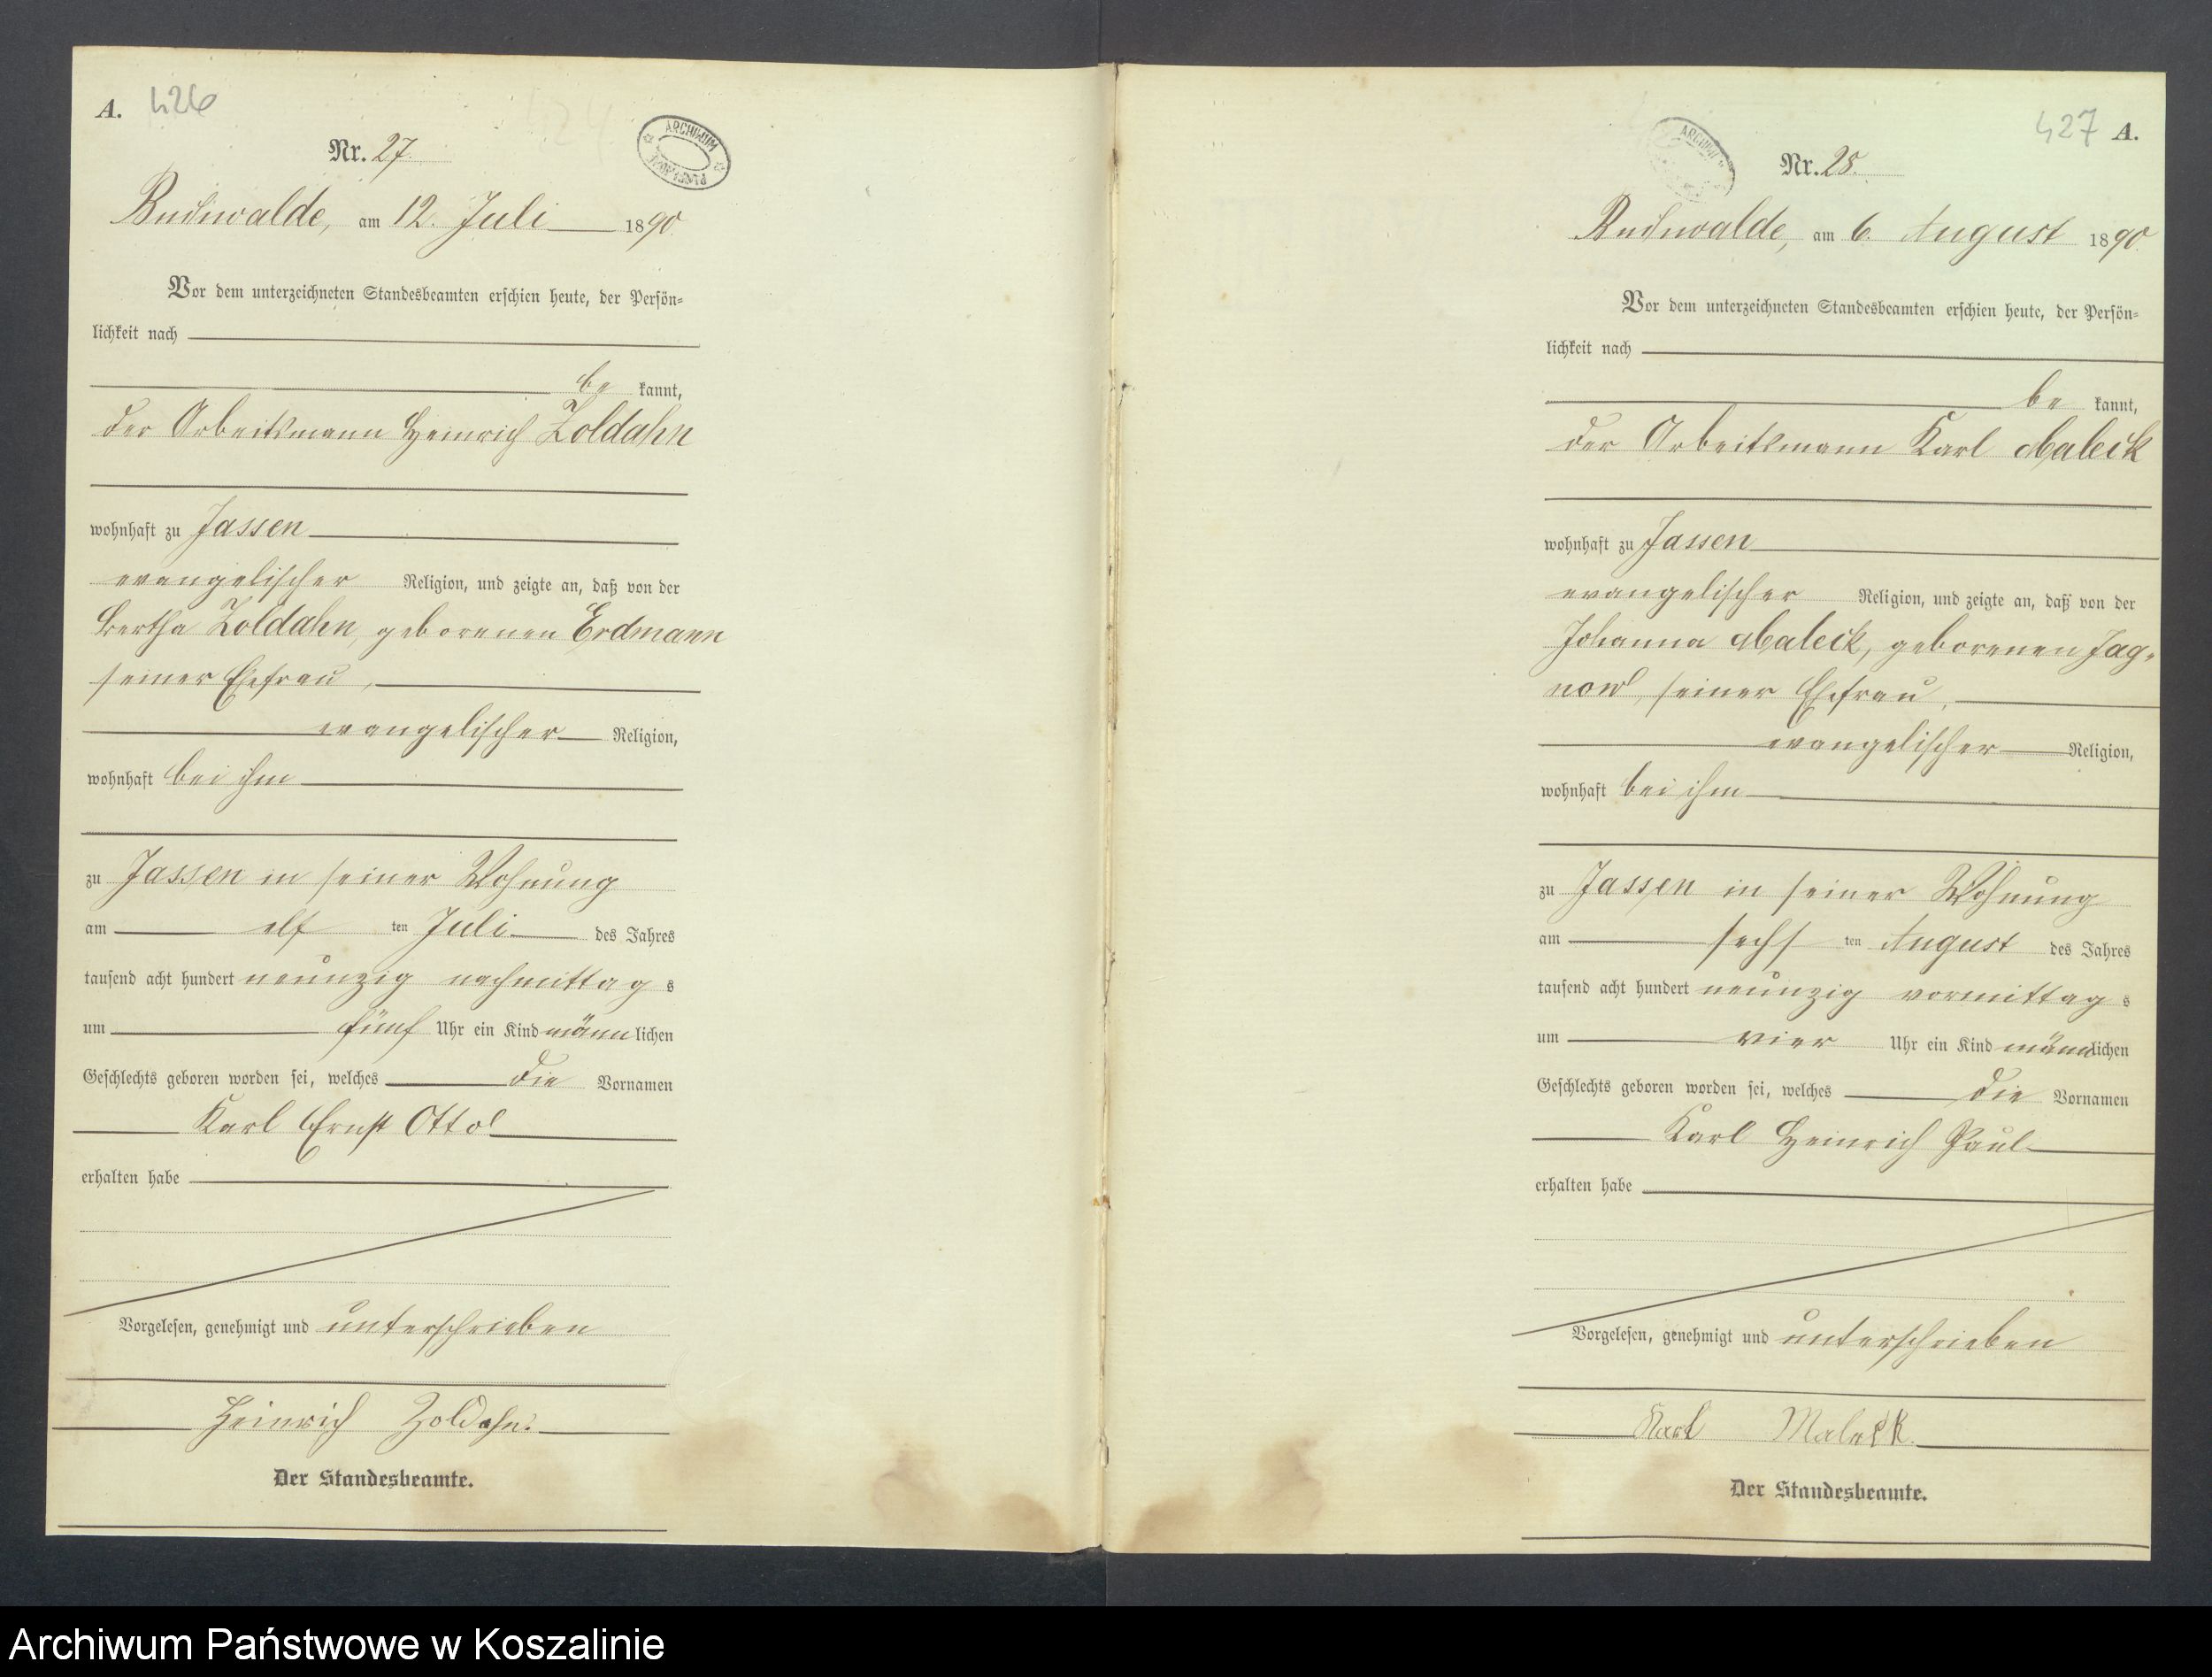 A. 426
ARCHIWUM
Nr. 27.
Buchwalde, am 12. Juli 1890
Vor dem unterzeichneten Standesbeamten erschien heute, der Persön=
lichkeit nach
be kannt,
der Arbeitsmann Heinrich Zoldahn
wohnhaft zu Jassen
evangelischer Religion, und zeigte an, daß von der
Bertha Zoldahn, geborenen Erdmann
seiner Ehefrau,
evangelischer Religion,
wohnhaft bei ihm
zu Jassen in seiner Wohnung
am elf ten Juli des Jahres
tausend acht hundert neunzig nachmittag s
um fünf Uhr ein Kind männ lichen
Geschlechts geboren worden sei, welches die Vornamen
Karl Ernst Otto
erhalten habe
Vorgelesen, genehmigt und unterschrieben
Heinrich Zoldahn.
Der Standesbeamte.
427 A.
Nr. 28.
Buchwalde, am 6. August 1890
Vor dem unterzeichneten Standesbeamten erschien heute, der Persön=
lichkeit nach
be kannt,
der Arbeitsmann Karl Maleck
wohnhaft zu Jassen
evangelischer Religion, und zeigte an, daß von der
Johanna Maleck, geborenen Jag=
now, seiner Ehefrau,
evangelischer Religion,
wohnhaft bei ihm
zu Jassen in seiner Wohnung
am sechs ten August des Jahres
tausend acht hundert neunzig vormittag s
um vier Uhr ein Kind männlichen
Geschlechts geboren worden sei, welches die Vornamen
Karl Heinrich Paul
erhalten habe
Vorgelesen, genehmigt und unterschrieben
Karl Maleck.
Der Standesbeamte.
Archiwum Państwowe w Koszalinie